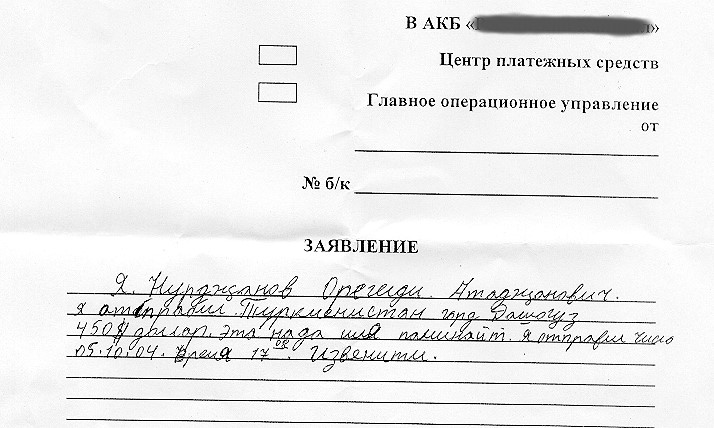 В АКБ «
Центр платежных средств
Главное операционное управление
от
№ б/к
ЗАЯВЛЕНИЕ
Я. Нурджанов Атаджанович.
я отправил Туркменистан горд Дашогуз
450$ долар. Эта нада имя паминайт. Я отправил число
05.10.04. Время 17 08. Извенити.